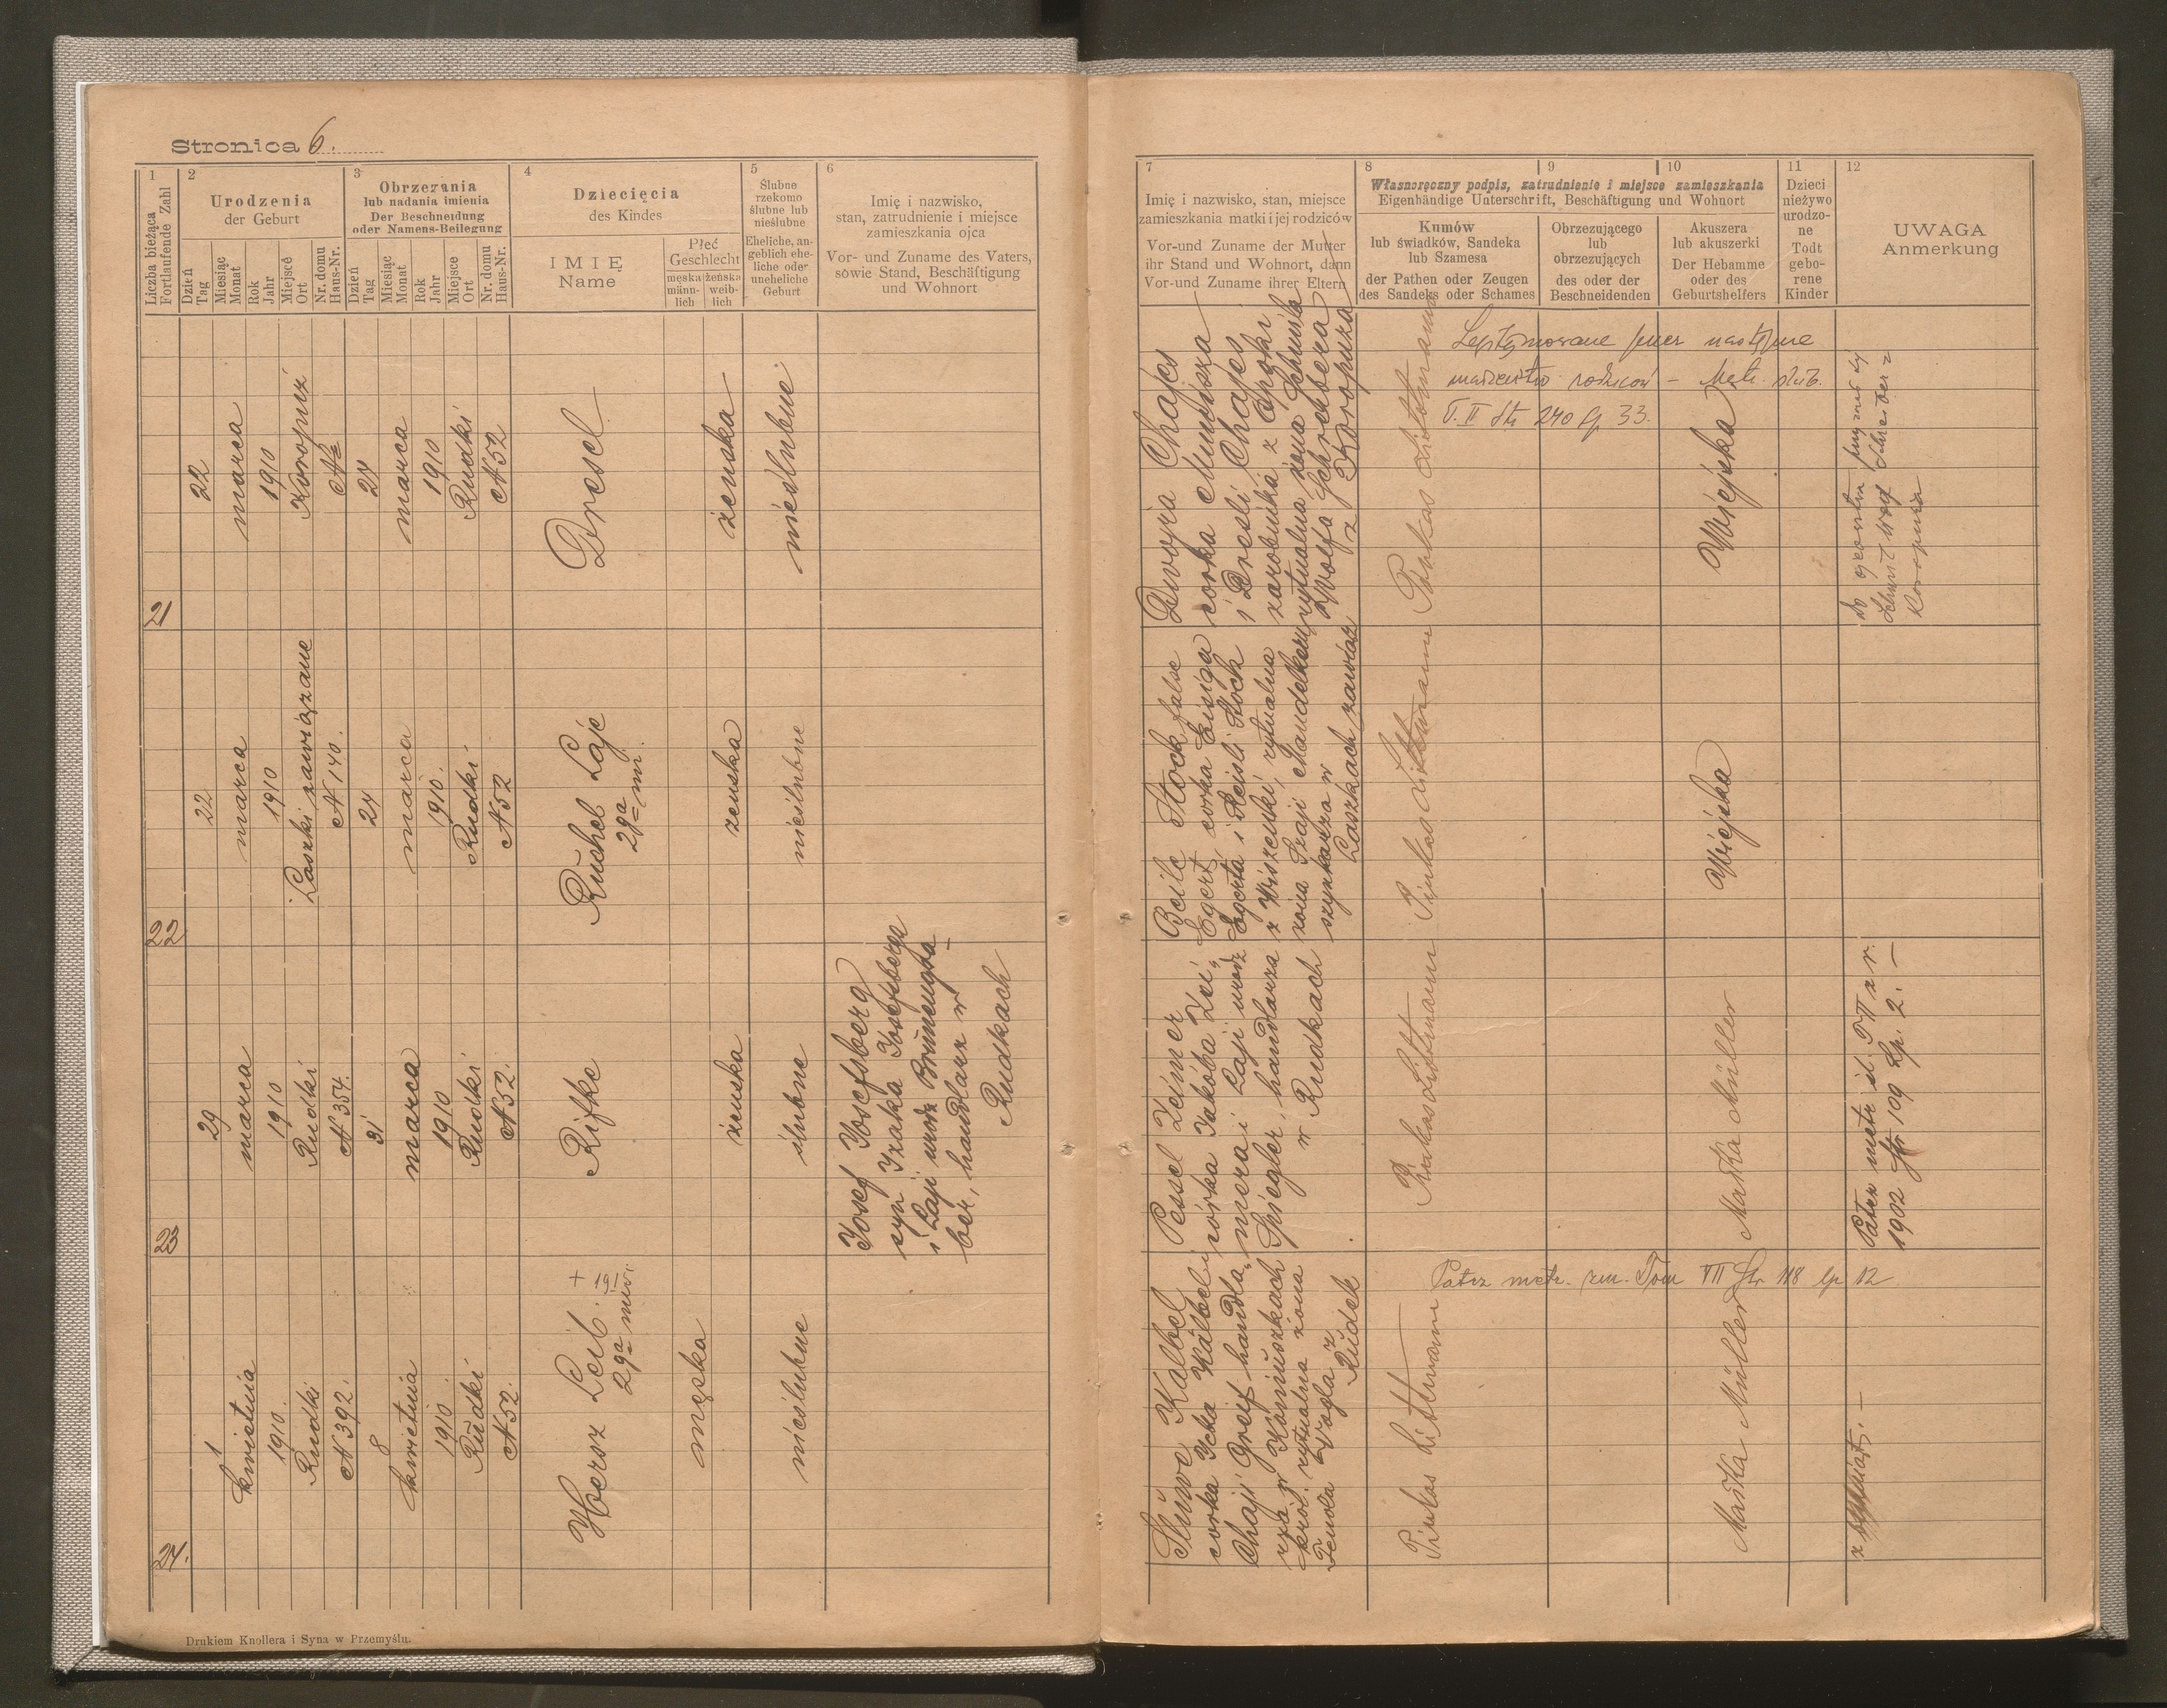 Stronica 6.
1
Liczba bieżąca
Fortlaufende Zahl
2
Urodzenia
der Geburt
Dzień
Tag
Miesiąc
Monat
Rok
Jahr
Miejsce
Ort
Nr. domu
Haus-Nr.
3
Obrzezania
lub nadania imienia
Der Beschneidung
oder Namens-Beilegung
Dzień
Tag
Miesiąc
Monat
Rok
Jahr
Miejsce
Ort
Nr. domu
Haus-Nr.
4
Dziecięcia
des Kindes
IMIĘ
Name
Płeć
Geschlecht
męska
männ-
lich
żeńska
weib-
lich
5
Ślubne
rzekomo
ślubne lub
nieślubne
Eheliche, an-
geblich ehe-
liche oder
uneheliche
Geburt
6
Imię i nazwisko,
stan, zatrudnienie i miejsce
zamieszkania ojca
Vor- und Zuname des Vaters,
sowie Stand, Beschäftigung
und Wohnort
7
Imię i nazwisko, stan, miejsce
zamieszkania matki i jej rodziców
Vor-und Zuname der Mutter
ihr Stand und Wohnort, dann
Vor-und Zuname ihrer Eltern
8
9
10
Własnoręczny podpis, zatrudnienie i miejsce zamieszkania
Eigenhändige Unterschrift, Beschäftigung und Wohnort
Kumów
lub świadków, Sandeka
lub Szamesa
der Pathen oder Zeugen
des Sandeks oder Schames
Obrzezującego
lub
obrzezujących
des oder der
Beschneidenden
Akuszera
lub akuszerki
Der Hebamme
oder des
Geburtshelfers
11
Dzieci
nieżywo
urodzo-
ne
Todt
gebo-
rene
Kinder
12
UWAGA
Anmerkung
21
22
marca
1910
Koropuż
24
marca
1910
Rudki
N 52
Dresel
żeńska
nieślubne
Dwojra Chajes
córka Mundisza
i Dresli Chajes
zarobnika z Opoki
rytualna żona Schmila
Wolfa Schreibera
z Koropuża
Pinkas Littmann
Legitymowane przez następne
małżeństwo rodziców - Metr. ślub.
T. II Str 240 lp 33.
Wiejska
22
22
marca
1910
Laszki zawiązane
N 140.
24
marca
1910.
Rudki
N 52
Ruchel Laje
2ga im.
żeńska
nieślubne
Beile Stock false
Egert, córka Eisiga
Egerta i Reisli Stock
z Wiszenki, rytualna
żona Szaji Mandelkern
szynkarza w
Laszkach zawiąz
Pinkas Littmann
Wiejska
23
29
marca
1910
Rudki
N 354.
31
marca
1910
Rudki
N 52.
Rifke
żeńska
ślubne
Josef Josefsberg
syn Izaka Josefsberga
i Laji urodz Brunengra-
ber, handlarz w
Rudkach
Pessel Zeimer
córka Jakóba Zei-
mera i Laji urodz
Spiegler, handlarza
w Rudkach
Pinkas Littmann
Maśka Müller
Patrz metr śl. T II z r.
1902 Str 109 Lp. 2. —
24.
1
kwietnia
1910.
Rudki
N 392.
8
kwietnia
1910
Rudki
N 52.
Hersz Leib.
2ga
męska
nieślubne
Sluwe Kälbel
córka Icka Kälbel i
Chaji Greif handla-
rza w Koniuszkach
król. rytualna żona
Feiwla Vogla z
Rudek
Pinkas Littmann
Patrz metr. zm. Tom VII Str 118 lp 12
Maśka Müller
Drukiem Knollera i Syna w Przemyślu.